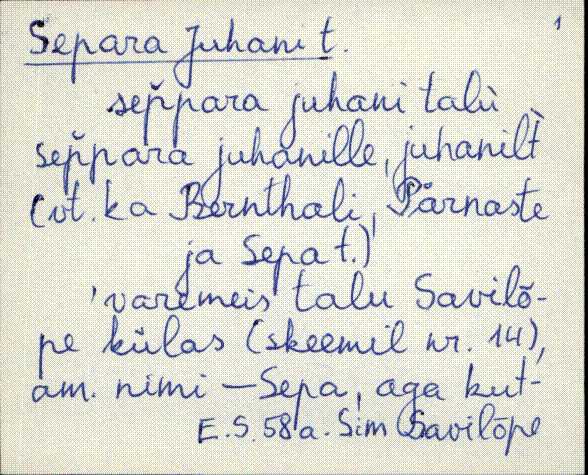 Separa Juhani t.
1
sep̆para juhani talù
sep̆para juhanille, juhanilt̀
(vt. ka Bernthali, Pärnaste
ja Sepa t.)
'varemeis talu Savilõ-
pe külas (skeemil nr. 14),
am. nimi – Sepa, aga kut-
E.S. 58 a. Sim Savilõpe